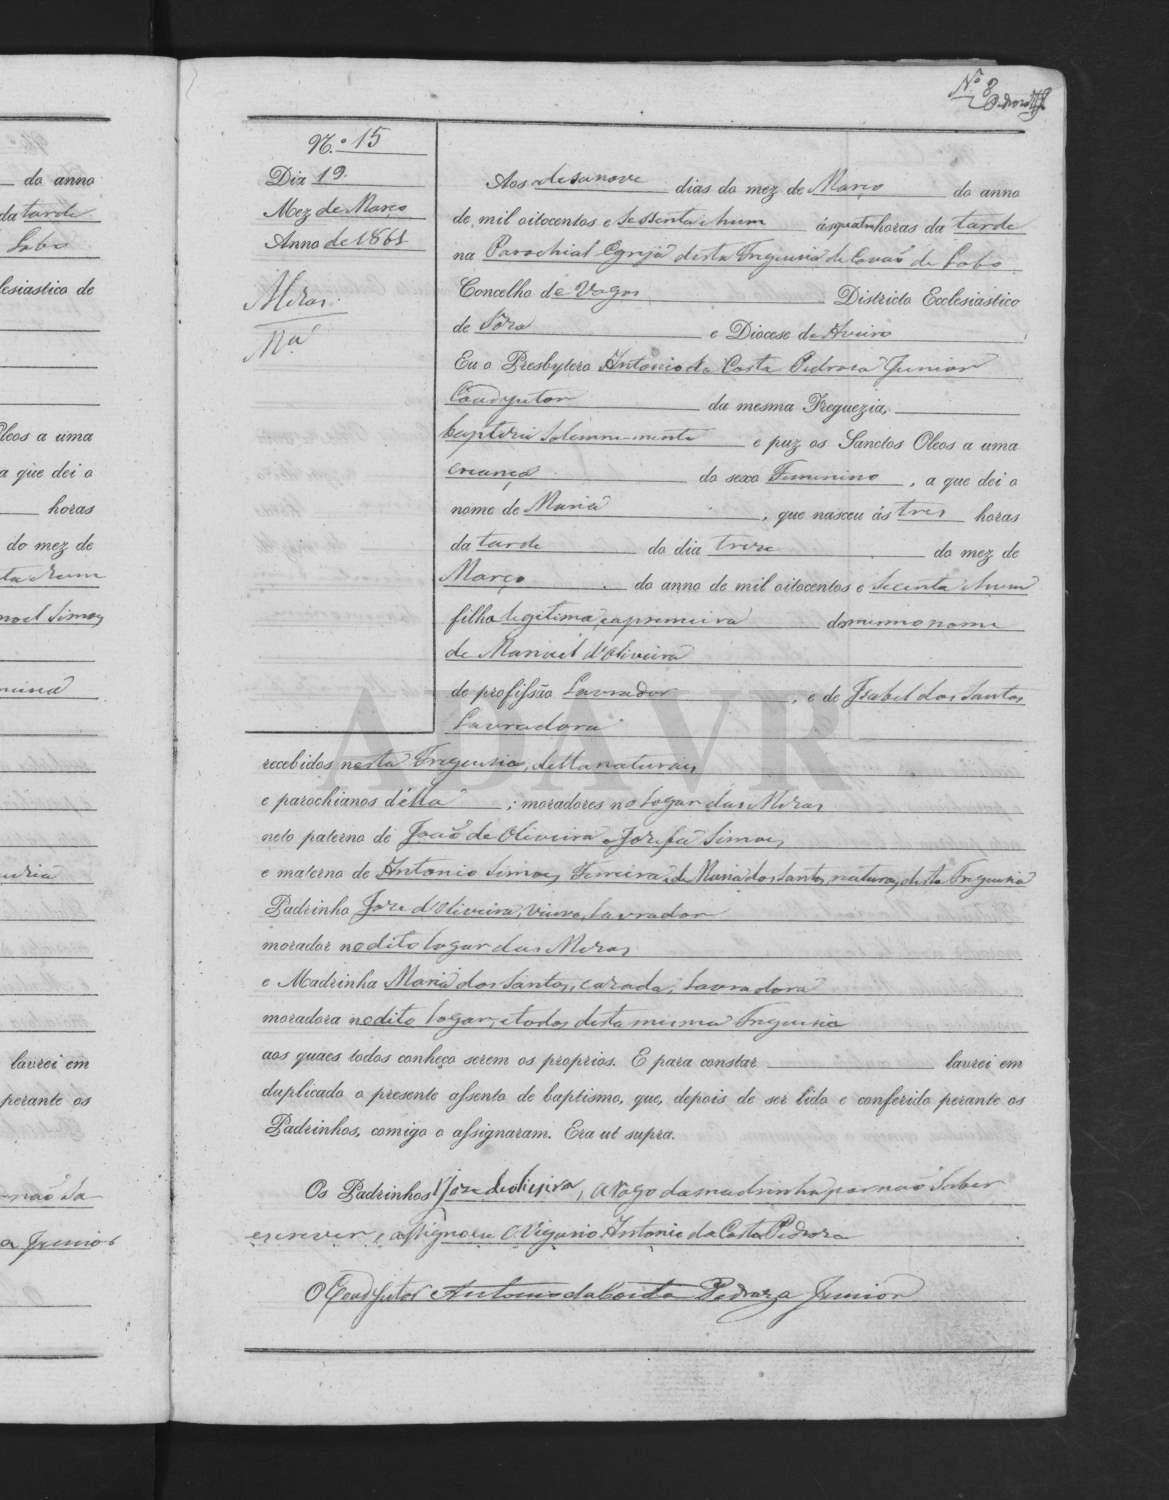 do anno
da tarde
Lobo
lesiastico de
Oleos a uma
a que dei o
horas
do mez de
noel Simoes
lavrei em
perante os
não sa
a Junior
Nº 8
Pedroza Jr
N.º 15
Dia 19.
Mez de Março
Anno de 1861
Mezas.
Mª
Aos desanove dias do mez de Março do anno
de mil oitocentos e sessenta e hum ás quatro horas da tarde
na Parochial Egreja desta Freguesia de Covão de Lobo
Concelho de Vagos Districto Ecclesiastico
de Soza e Diocese de Aveiro
Eu o Presbytero Antonio da Costa Pedroza Junior
Coadjutor da mesma Freguezia,
baptizei solemnemente e puz os Sanctos Oleos a uma
criança do sexo Femenino, a que dei o
nome de Maria, que nasceu ás tres horas
da tarde do dia treze do mez de
Março do anno de mil oitocentos e secenta e hum
filha legitima, e a premeira do mesmo nome
de Manoel d'Oliveira
de profissão Lavrador, e de Isabel dos Santos
Lavradora
recebidos nesta Freguesia, della naturaes
e parochianos della; moradores no Logar das Mezas
neto paterno de João de Oliveira e Jozefa Simoes
e materno de Antonio Simoes Ferreira, e de Maria dos Santos, naturaes desta Freguesia
Padrinho Joze d'Oliveira, Viuvo, Lavrador
morador no dito Logar das Mezas
e Madrinha Maria dos Santos, cazada, Lavradora
moradora no dito Logar, e todos desta mesma Freguesia
aos quaes todos conheço serem os proprios. E para constar lavrei em
duplicado o presente assento de baptismo, que, depois de ser lido e conferido perante os
Padrinhos, comigo o assignaram. Era ut supra.
Os Padrinhos Joze de olieira, a rogo da madrinha por não saber
escrever, assignou O Vigario Antonio da Costa Pedroza
O Coadjutor Antonio da Costa Pedroza Junior
ADAVR